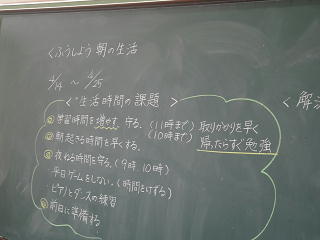 くふうしよう 朝の生活
4/14 ~ 4/25
<生活時間の課題>
◎学習時間を増やす、守る。(11時まで) 取りかかりを早く
◎朝起きる時間を早くする。(10時まで) 帰ったらすぐ勉強
◎夜ねる時間を守る。(9時、10時)
・平日ゲームをしない。(時間とけする)
・ピアノとダンスの練習
◎前日に準備する
<解決